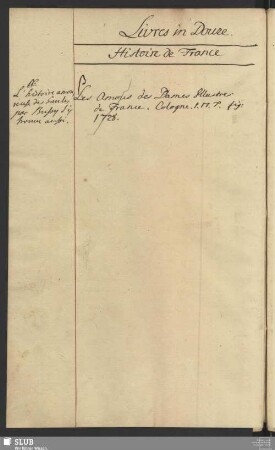 Livres in Douze.
Histoire de France
NB.
L'histoire amou
reuse des Gaules
par Bussy s'y
trouve aussi.
Les Amours des Dames Illustres
de France. Cologne. fig.
1728.
SLUB
Wir führen Wissen.